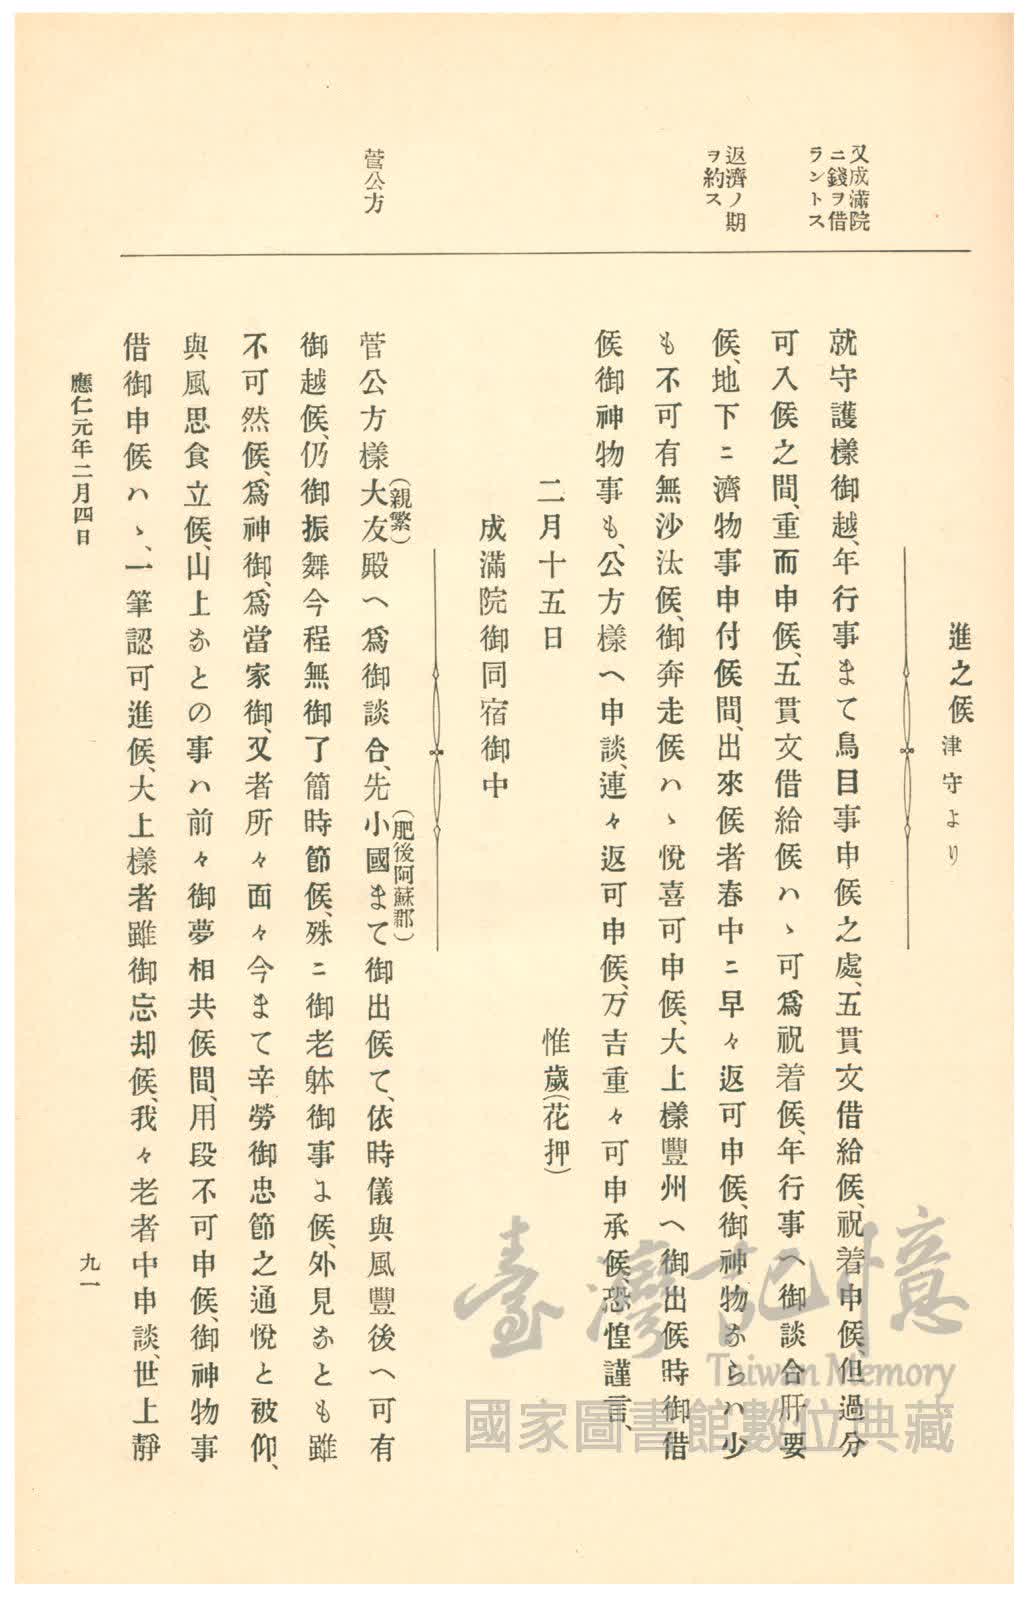 又成滿院
ニ錢ヲ借
ラントス
返濟ノ期
ヲ約ス
菅公方
進之候 津守より
就守護樣御越、年行事まて鳥目事申候之處、五貫文借給候、祝着申候、但過分
可入候之間、重而申候、五貫文借給候ハヽ可爲祝着候、年行事へ御談合肝要
候、地下ニ濟物事申付候間、出來候者春中ニ早々返可申候、御神物ならハ少
も不可有無沙汰候、御奔走候ハヽ悅喜可申候、大上樣豐州へ御出候時御借
候御神物事も、公方樣へ申談、連々返可申候、万吉重々可申承候、恐惶謹言、
二月十五日 惟歲(花押)
成滿院御同宿御中
菅公方樣大友殿へ爲御談合、先小國まて御出候て、依時儀與風豐後へ可有
(親繁)
(肥後阿蘇郡)
御越候、仍御振舞今程無御了簡時節候、殊ニ御老躰御事よ候、外見なとも雖
不可然候、爲神御、爲當家御、又者所々面々今まて辛勞御忠節之通悅と被仰、
與風思食立候、山上なとの事ハ前々御夢相共候間、用段不可申候、御神物事
借御申候ハヽ、一筆認可進候、大上樣者雖御忘却候、我々老者中申談、世上靜
應仁元年二月四日
九一
臺灣記憶
Taiwan Memory
國家圖書館數位典藏